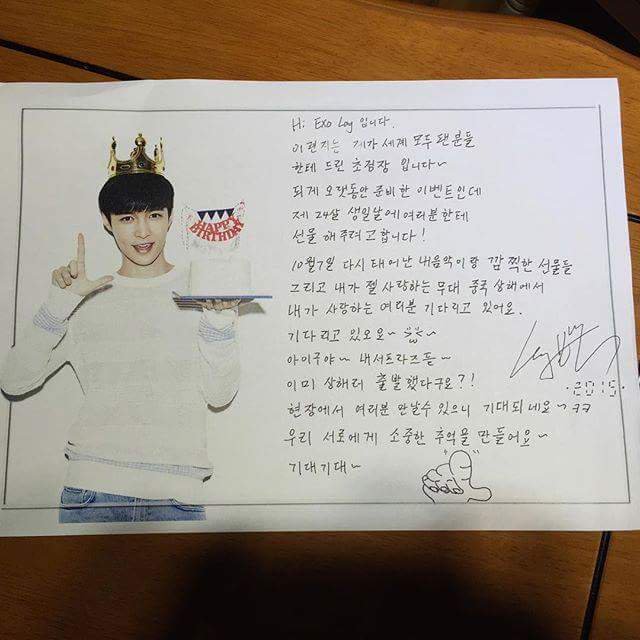 HAPPY
BIRTHDAY
Hi Exo Lay 입니다.
이 편지는 제가 세계 모두 팬분들
한테 드린 초점장 입니다~
되게 오랫동안 준비한 이벤트인데
제 24살 생일날에 여러분한테
선물 해주려고 합니다!
10월7일 다시 태어난 내음악이랑 깜짝한 선물들
그리고 내가 젤 사랑하는 무대 중국 상해에서
내가 사랑하는 여러분 기다리고 있어요.
기다리고 있오요~
아이구야~ 내서프라즈듣~
이미 상해러 출발했다구요?!
현장에서 여러분 만날수 있으니 기대되네요~ㅋㅋ
우리 서로에게 소중한 추억을 만들어요~
기대기대~
Lay
·2015·